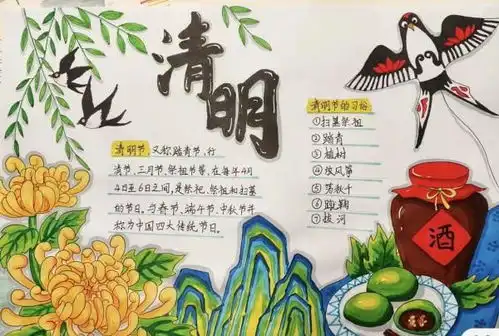 清明
清明节 又称踏青节、行
清节、三月节、祭祖节等，在每年4月
4日至6日之间，是祭祀、祭祖和扫墓
的节日。与春节、端午节、中秋节并
称为中国四大传统节日。
清明节的习俗
①扫墓祭祖
②踏青
③植树
④放风筝
⑤荡秋千
⑥蹴鞠
⑦拔河
酒